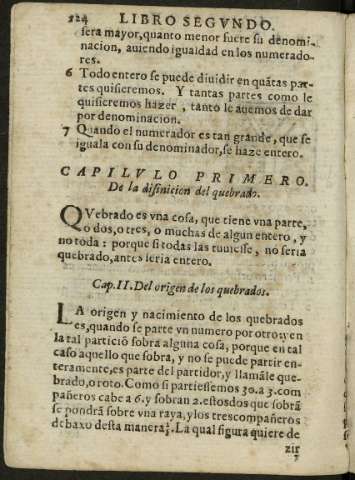 124 LIBRO SEGVNDO.
sera mayor, quanto menor fuere su denomi-
nacion, auiendo igualdad en los numerado-
res.
6 Todo entero se puede diuidir en quātas par-
tes quisieremos. Y tantas partes como le
quisieremos hazer, tanto le auemos de dar
por denominacion.
7 Quando el numerador es tan grande, que se
iguala con su denominador, se haze entero.
CAPILVLO PRIMERO.
De la difinicion del quebrado.
QVebrado es vna cosa, que tiene vna parte,
o dos, o tres, o muchas de algun entero, y
no toda: porque si todas las tuuiesse, no seria
quebrado, antes seria entero.
Cap. II. Del origen de los quebrados.
LA origen y nacimiento de los quebrados
es, quando se parte vn numero por otro, y en
la tal particiō sobra alguna cosa, porque en tal
caso aquello que sobra, y no se puede partir en-
teramente, es parte del partidor, y llamāle que-
brado, o roto. Como si partiessemos 30. a 3. com
pañeros cabe a 6. y sobran 2. estos dos que sobrā
se pondrā sobre vna raya, y los tres compañeros
debaxo desta manera ⅔. La qual figura quiere de
zir